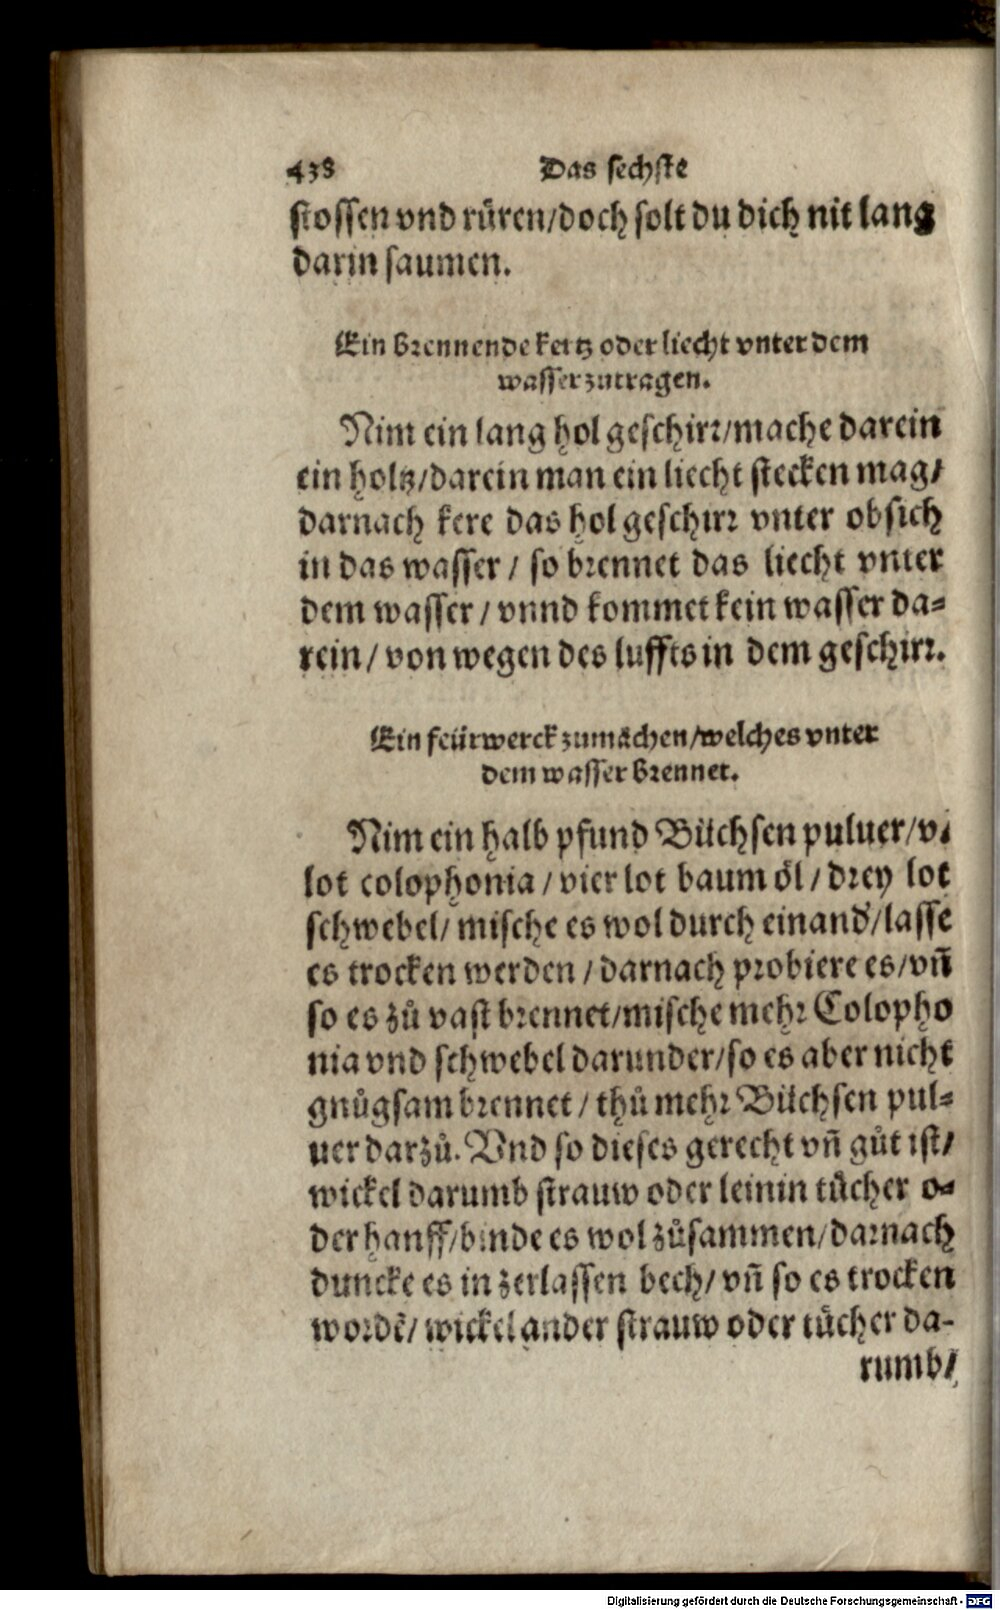 438 Das sechste
stossen vnd rüren/doch solt du dich nit lang
darin saumen.
Ein brennende kertz oder liecht vnter dem
wasser zutragen.
Nim ein lang hol geschirr/mache darein
ein holtz/darein man ein liecht stecken mag/
darnach kere das hol geschirr vnter obsich
in das wasser / so brennet das liecht vnter
dem wasser / vnnd kommet kein wasser da-
rein / von wegen des luffts in dem geschirr.
Ein feürwerck zumachen/welches vnter
dem wasser brennet.
Nim ein halb pfund Büchsen puluer/v.
lot colophonia / vier lot baum öl / drey lot
schwebel/ mische es wol durch einand'/lasse
es trocken werden / darnach probiere es/vñ
so es zů vast brennet/mische mehr Colopho
nia vnd schwebel darunder/so es aber nicht
gnůgsam brennet / thů mehr Büchsen pul-
uer darzů. Vnd so dieses gerecht vñ gůt ist/
wickel darumb strauw oder leinin tücher o-
der hanff/binde es wol zůsammen/darnach
duncke es in zerlassen bech/ vñ so es trocken
wordē/ wickel ander strauw oder tücher da-
rumb/
Digitalisierung gefördert durch die Deutsche Forschungsgemeinschaft - DFG